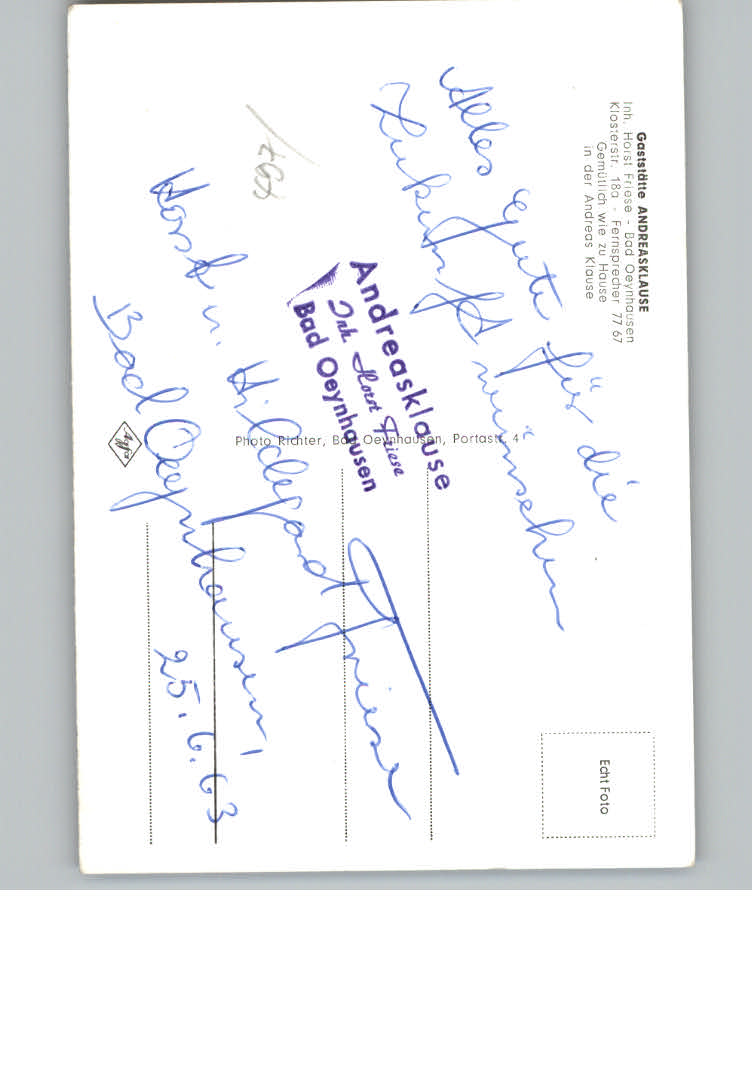 Gaststätte ANDREASKLAUSE
Inh. Horst Friese - Bad Oeynhausen
Klosterstr. 18a - Fernsprecher 77 67
Gemütlich wie zu Hause
in der Andreas Klause
Alles Gute für die
Zukunft wünschen
Andreasklause
Inh. Horst Friese
Bad Oeynhausen
Horst u. Hildegard Friese
Bad Oeynhausen,
25.6.63
Photo Richter, Bad Oeynhausen, Portastr. 4
Agfa
Echt Foto